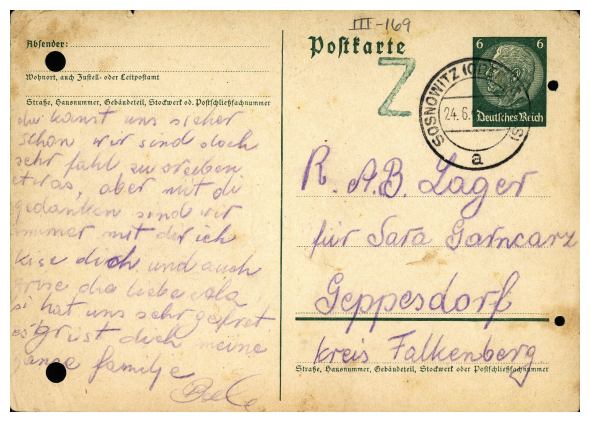 III-169
Absender:
Wohnort, auch Zustell- oder Leitpostamt
Straße, Hausnummer, Gebäudeteil, Stockwerk od. Postschließfachnummer
du kanst uns sicher
schon wir sind doch
sehr fahl zu
etwas, aber mit di
gedanken sind wir
immer mit dir ich
kise dich und auch
grise die liebe
si hat uns sehr gefret
es grist dich meine
ganze familje
Postkarte
Z
6 6
Deutsches Reich
SOSNOWITZ
24.6.
a
R.A.B. Lager
für Sara Garncarz
Geppesdorf
kreis Falkenberg
Straße, Hausnummer, Gebäudeteil, Stockwerk oder Postschließfachnummer